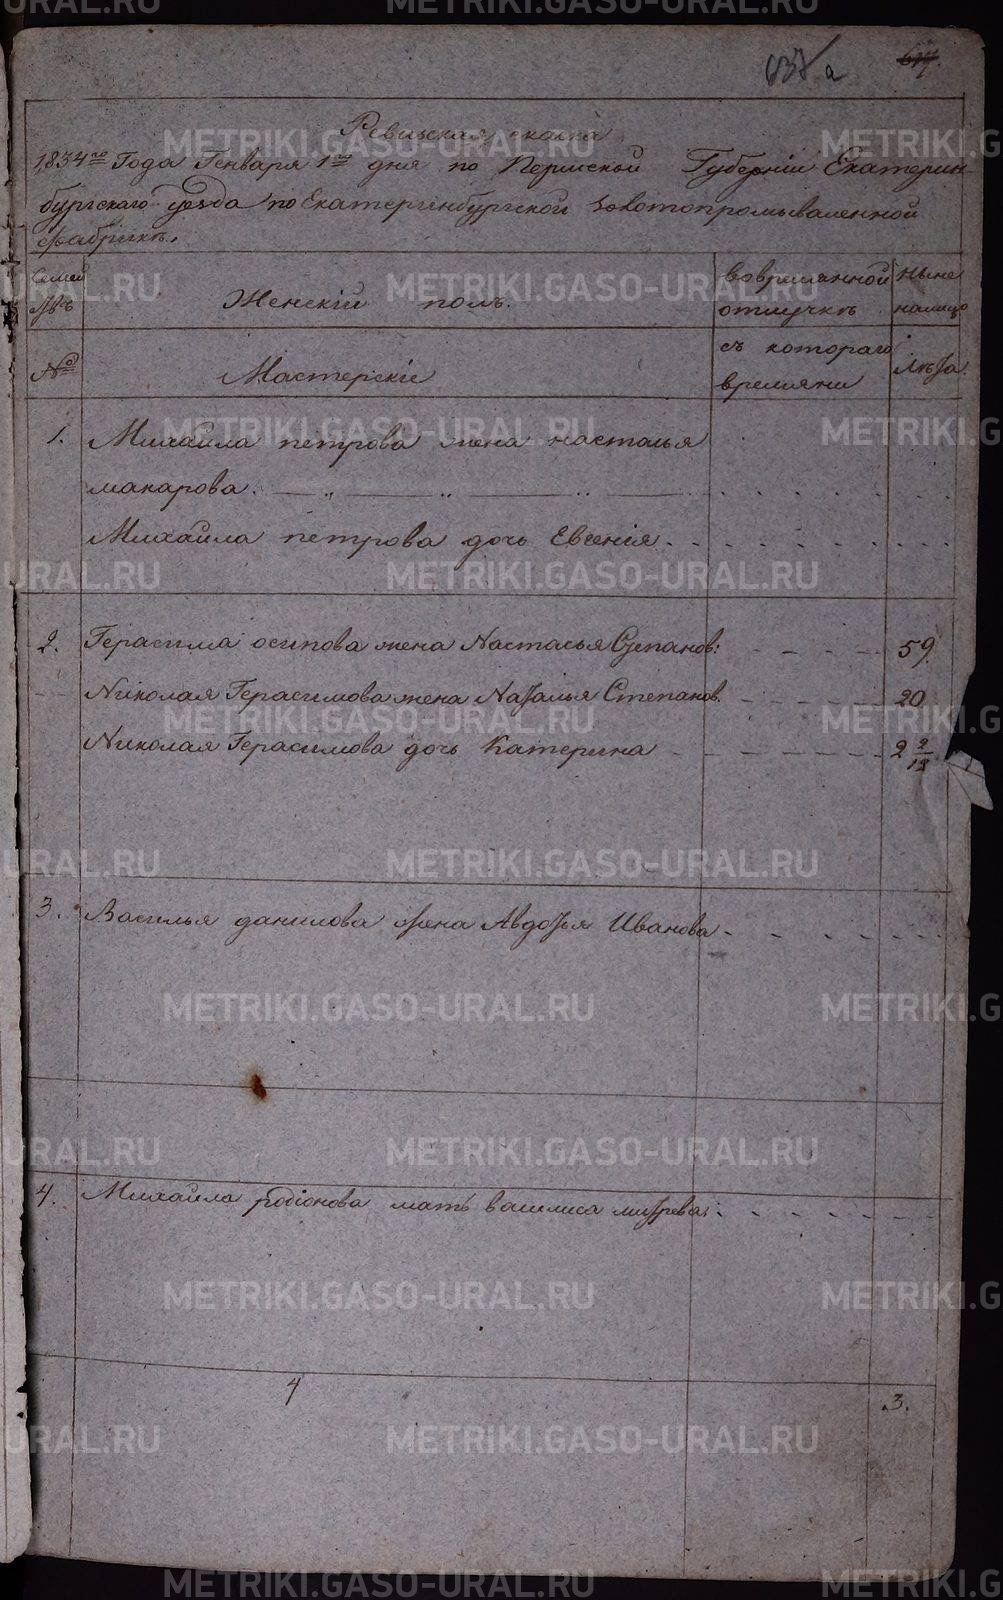 637 а
677.
Ревизская сказка
1834го Года Генваря 1го дня по Пермской Губернiи Екатерин-
бургскаго уѣзда по Екатеринбургской Золотопромываленной
фабрикѣ.
Семей
№ъ
Женскiй полъ.
вовремянной
отлучкѣ
ныне
налицо
№
Мастерскiе
съ котораго
времяни
лѣта
1. Михаила петрова жена насталья
макарова.
Михаила петрова дочь Евгенiя
2. Герасима осипова жена Настасья Степанов: 59
Николая Герасимова жена Наталья Степанов. 20
Николая Герасимова дочь Катерина 2 2/12
3. Василья данилова жена Авдотья Иванова
4. Михаила родiонова мать василиса
4 .3.
METRIKI.GASO-URAL.RU